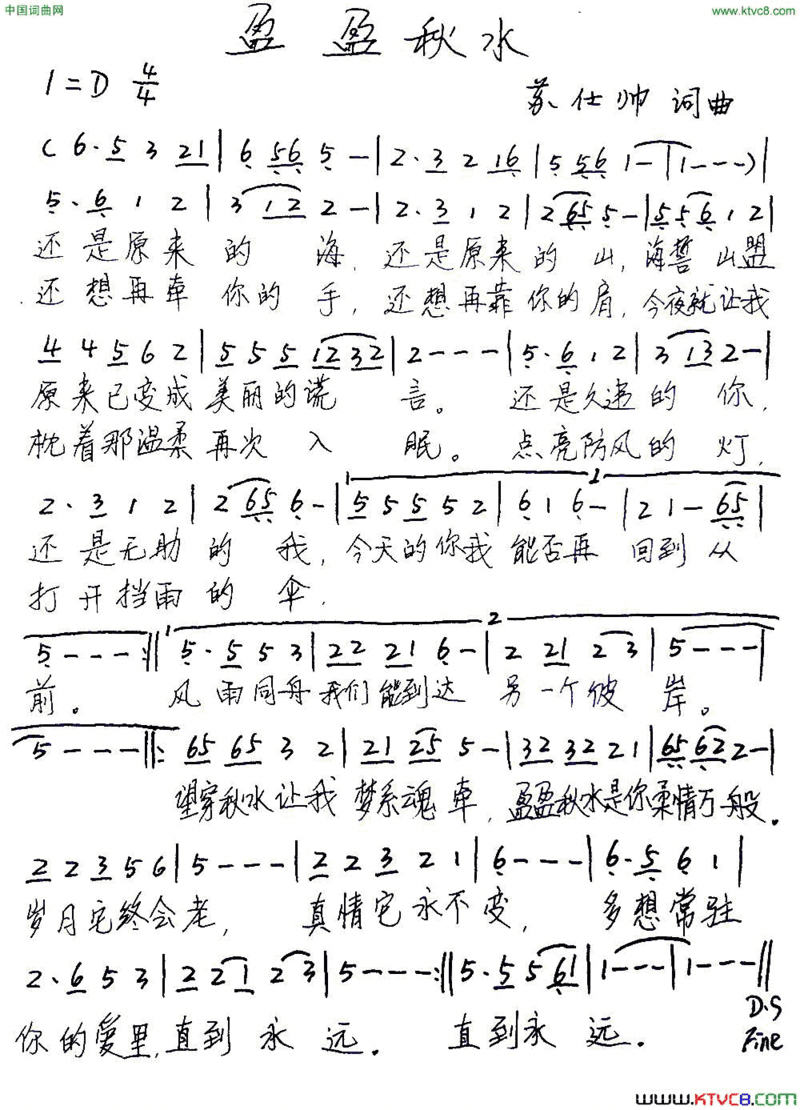 中国词曲网
www.ktvc8.com
盈盈秋水
1=D 4/4
苏仕帅 词曲
(6·5 3 21|6 56 5 -|2·3 2 16|5 56 1 -|1 - - -)|
5·6 1 2|3 12 2 -|2·3 1 2|2 65 5 -|5 5 6 1 2|
还是原来的 海,还是原来的 山,海誓山盟
还想再牵你的手,还想再靠你的肩,今夜就让我
4 4 5 6 2|5 5 5 1232|2 - - -|5·6 1 2|3 13 2 -|
原来已变成美丽的谎 言。 还是久违的 你,
枕着那温柔再次 入 眠。 点亮防风的 灯,
2·3 1 2|2 65 6 -|5 5 5 5 2|6 1 6 -|2 1 - 65|
1
还是无助的 我,今天的你我能否再 回到从
打开挡雨的 伞,
5 - - - :||5·5 5 3|22 21 6 -|2 21 2 3|5 - - -|
2
前。 风雨同舟我们能到达 另一个彼 岸。
5 - - -||:65 65 3 2|21 25 5 -|32 32 2 1|65 62 2 -|
望穿秋水让我梦系魂牵,盈盈秋水是你柔情万般。
2 2 3 5 6|5 - - -|2 2 3 2 1|6 - - -|6·5 6 1|
岁月它终会老, 真情它永不变, 多想常驻
2·6 5 3|2 2 1 2 3|5 - - - :||5·5 5 61|1 - - -|1 - - -||
你的爱里,直到永 远。 直到永 远。
D.S
Fine
www.KTVC8.com